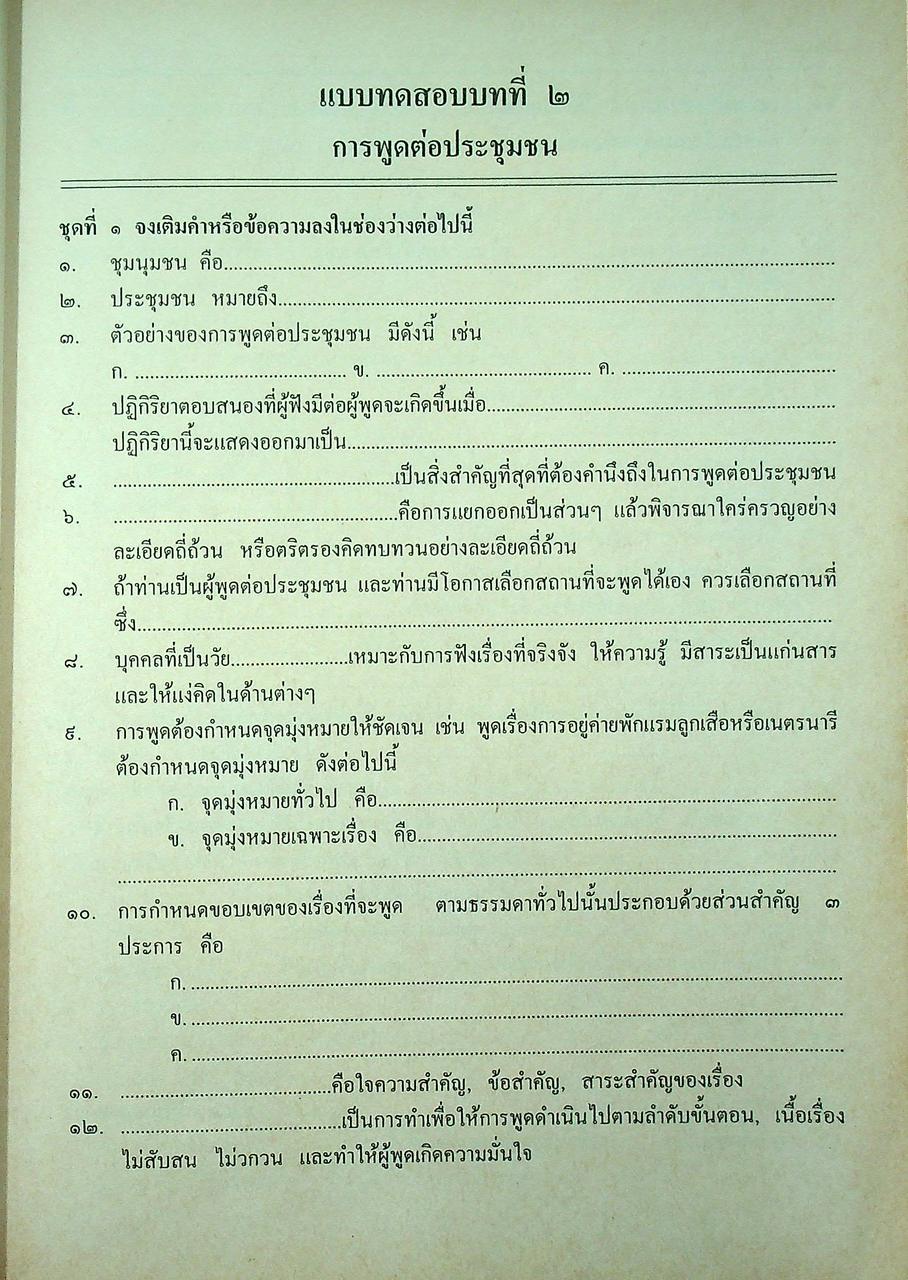 แบบทดสอบบทที่ ๒
การพูดต่อประชุมชน
ชุดที่ ๑ จงเติมคำหรือข้อความลงในช่องว่างต่อไปนี้
๑. ชุมนุมชน คือ........................................................................
๒. ประชุมชน หมายถึง........................................................................
๓. ตัวอย่างของการพูดต่อประชุมชน มีดังนี้ เช่น
ก. .................................... ข. .................................... ค. ....................................
๔. ปฏิกิริยาตอบสนองที่ผู้ฟังมีต่อผู้พูดจะเกิดขึ้นเมื่อ............................................................
ปฏิกิริยานี้จะแสดงออกมาเป็น........................................................................
๕. ................................................เป็นสิ่งสำคัญที่สุดที่ต้องคำนึงถึงในการพูดต่อประชุมชน
๖. ................................................คือการแยกออกเป็นส่วนๆ แล้วพิจารณาใคร่ครวญอย่าง
ละเอียดถี่ถ้วน หรือตริตรองคิดทบทวนอย่างละเอียดถี่ถ้วน
๗. ถ้าท่านเป็นผู้พูดต่อประชุมชน และท่านมีโอกาสเลือกสถานที่จะพูดได้เอง ควรเลือกสถานที่
ซึ่ง........................................................................
๘. บุคคลที่เป็นวัย.......................เหมาะกับการฟังเรื่องที่จริงจัง ให้ความรู้ มีสาระเป็นแก่นสาร
และให้แง่คิดในด้านต่างๆ
๙. การพูดต้องกำหนดจุดมุ่งหมายให้ชัดเจน เช่น พูดเรื่องการอยู่ค่ายพักแรมลูกเสือหรือเนตรนารี
ต้องกำหนดจุดมุ่งหมาย ดังต่อไปนี้
ก. จุดมุ่งหมายทั่วไป คือ........................................................................
ข. จุดมุ่งหมายเฉพาะเรื่อง คือ........................................................................
........................................................................
๑๐. การกำหนดขอบเขตของเรื่องที่จะพูด ตามธรรมดาทั่วไปนั้นประกอบด้วยส่วนสำคัญ ๓
ประการ คือ
ก. ........................................................................
ข. ........................................................................
ค. ........................................................................
๑๑. ....................................คือใจความสำคัญ, ข้อสำคัญ, สาระสำคัญของเรื่อง
๑๒. ......................................เป็นการทำเพื่อให้การพูดดำเนินไปตามลำดับขั้นตอน, เนื้อเรื่อง
ไม่สับสน ไม่วกวน และทำให้ผู้พูดเกิดความมั่นใจ